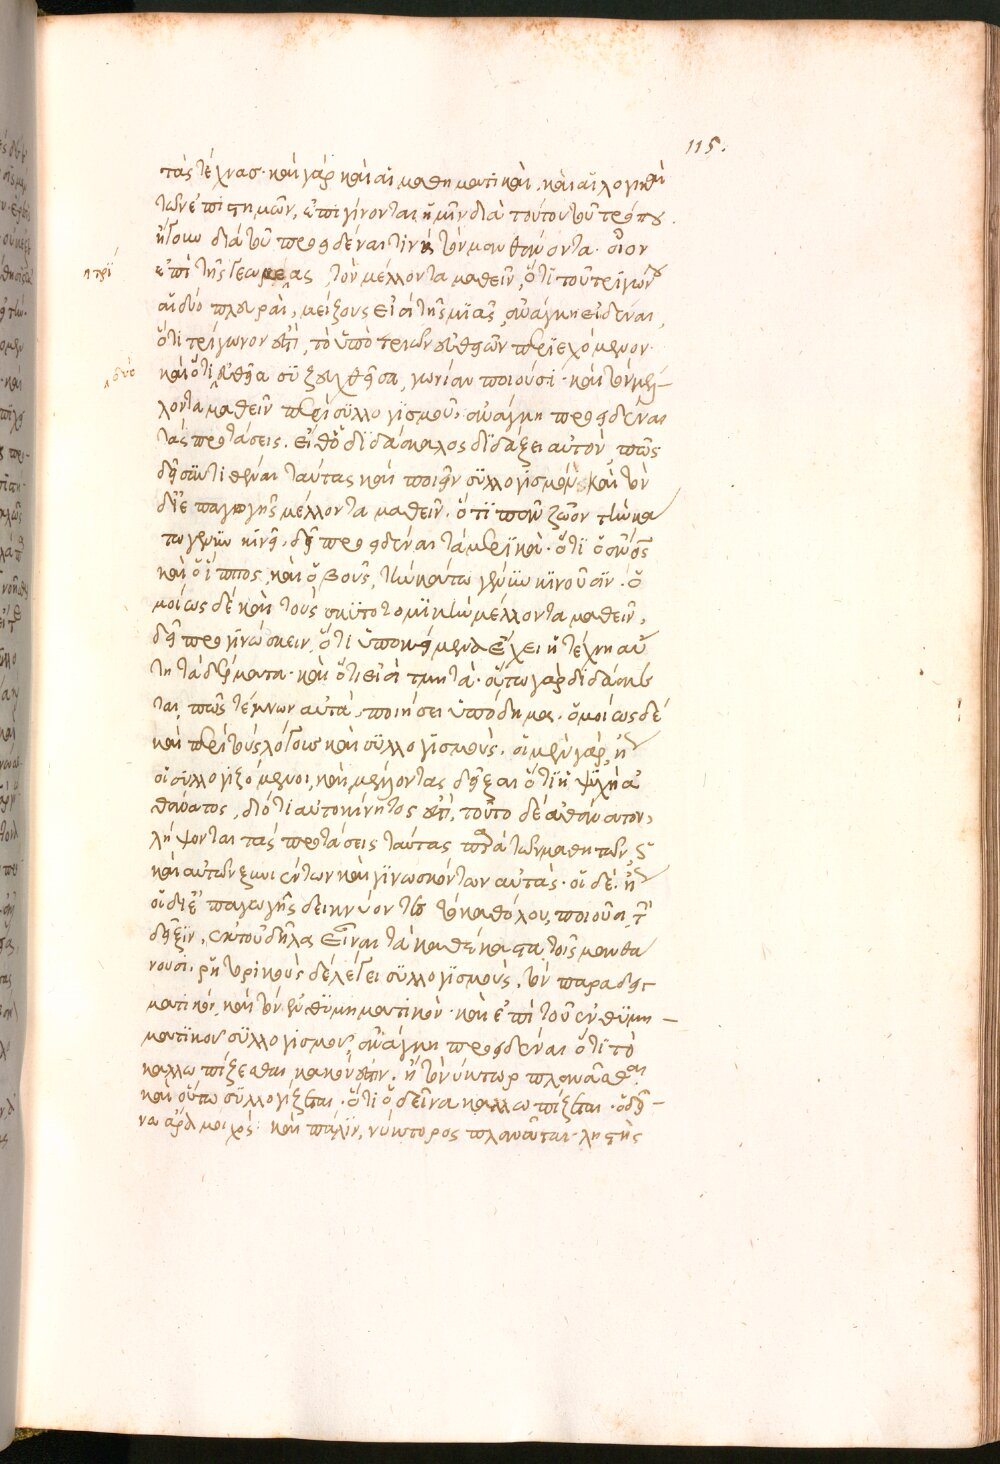 115.
τὰς τέχνασ· καὶ γὰρ καὶ αἱ μαθηματικαὶ, καὶ αἱ λογικαὶ
τῶν ἐπιστημῶν, ἐπιγίνονται ἡμῖν διὰ τούτου τοῦ τρόπου.
ἤγουν διὰ τοῦ προειδέναι τινὰ τὸν μανθάνοντα· οἷον
ἐπὶ τῆς γεωμε ας, τὸν μέλλοντα μαθεῖν, ὅτι τοῦ τριγώνου
ητρί
αἱ δύο πλευραὶ, μείζους εἰσὶ τῆς μιᾶς, ἀνάγκη εἰδέναι,
ὅτι τρίγωνον ἐστὶ, τὸ ὑπὸ τριῶν εὐθειῶν περιεχόμενον·
καὶ ὅτι εὐθεῖα συζευχθεῖσα, γωνίαν ποιοῦσι· καὶ τὸν μέλ–
δύο
λοντα μαθεῖν περὶ συλλογισμοῦ, ἀνάγκη προειδέναι
τὰς προτάσεις. εἶθ' ὁ διδάσκαλος διδάξει αὐτὸν, πῶς
δεῖ συντιθέναι ταύτας καὶ ποιεῖν συλλογισμόν· καὶ τὸν
δι' ἐπαγωγῆς μέλλοντα μαθεῖν· ὅτι πᾶν ζῶον τὴν κά
τω γένυν κινεῖ, δεῖ προειδέναι τὰ μερικά· ὅτι ὁ ἄνος
καὶ ὁ ἵππος, καὶ ὁ βοῦς, τὴν κάτω γένυν κινοῦσιν. ὁ
μοίως δὲ καὶ τοὺς σκυτοτομικὴν μέλλοντα μαθεῖν,
δεῖ προγινώσκειν, ὅτι ὑποκείμενα ἔχει ἡ τέχνη αὕ
τη τὰ δέρματα· καὶ ὅτι εἰσὶ τμητά· οὕτω γὰρ διδάσκε
ται, πῶς τέμνων αὐτὰ, ποιήσει ὑπόδημα. ὁμοίως δὲ
καὶ περὶ τοὺς λόγους καὶ συλλογισμούς. οἱ μὲν γὰρ,
οἱ συλλογιζόμενοι, καὶ μέλλοντας δεῖξαι ὅτι ἡ ψυχὴ ἀ
θάνατος, διότι αὐτοκίνητος ἐστὶ, τοῦτο δὲ ἀθάνατον,
λήψονται τὰς προτάσεις ταύτας παρὰ τῶν μαθητῶν, ς
καὶ αὐτῶν ξυνιέντων καὶ γινωσκόντων αὐτάς. οἱ δὲ,
οἱ δι' ἐπαγωγῆς δεικνύοντες τὸ καθόλου, ποιοῦσι τὴν
δεῖξιν, ἐκ τοῦ δῆλα εἶναι τὰ καθέκαστα τοῖς μανθά
νουσι. ῥητορικοὺς δὲ λέγει συλλογισμοὺς, τὸν παραδειγ–
ματικὸν, καὶ τὸν ἐνθυμηματικόν· καὶ ἐπὶ τοῦ ἐνθυμη–
ματικοῦ συλλογισμοῦ, ἀνάγκη προειδέναι ὅτι τὸ
καλλωπίζεσθαι, κακόν ἐστιν. ἢ τὸν νύκτωρ πλανᾶσθαι
καὶ οὕτω συλλογίζεται. ὅτι ὁ δεῖνα καλλωπίζεται· ὁ δεῖ–
να ἄρα μοιχός· καὶ πάλιν, νύκτορος πλανᾶται· ληστὴς